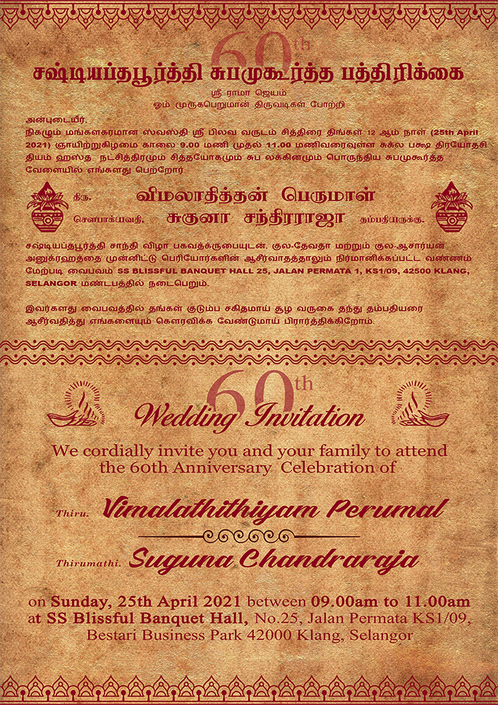 60th
சஷ்டியப்தபூர்த்தி சுபமுகூர்த்த பத்திரிக்கை
ஸ்ரீ ராமா ஜெயம்
ஓம் முருகபெறுமான் திருவடிகள் போற்றி
அன்புடையீர்,
நிகழும் மங்களகரமான ஸ்வஸ்தி ஸ்ரீ பிலவ வருடம் சித்திரை திங்கள் 12 ஆம் நாள் (25th April
2021) ஞாயிற்றுகிழமை காலை 9.00 மணி முதல் 11.00 மணிவரைவுள்ள சுக்ல பக்ஷ திரயோதசி
திதியம் ஹஸ்த நட்சித்திரமும் சித்தயோகமும் சுப லக்கினமும் பொருந்திய சுபமுகூர்த்த
வேளையில் எங்களது பெற்றோர்
திரு. விமலாதித்தன் பெருமாள்
சௌபாக்யவதி. சுகுனா சந்திரராஜா தம்பதியருக்கு.
சஷ்டியப்தபூர்த்தி சாந்தி விழா பகவத்க்ருபையுடன், குல-தேவதா மற்றும் குல-ஆசார்யன்
அனுக்ரஹத்தை முன்னிட்டு பெரியோர்களின் ஆசீர்வாதத்தாலும் நிர்மானிக்கப்பட்ட வண்ணம்
மேற்படி வைபவம் SS BLISSFUL BANQUET HALL 25, JALAN PERMATA 1, KS1/09, 42500 KLANG,
SELANGOR மண்டபத்தில் நடைபெறும்.
இவர்களது வைபவத்தில் தங்கள் குடும்ப சகிதமாய் சூழ வருகை தந்து தம்பதியரை
ஆசீர்வதித்து எங்களையும் கௌரவிக்க வேண்டுமாய் பிரார்த்திக்கிறோம்.
60th
Wedding Invitation
We cordially invite you and your family to attend
the 60th Anniversary Celebration of
Thiru. Vimalathithiyam Perumal
Thirumathi. Suguna Chandraraja
on Sunday, 25th April 2021 between 09.00am to 11.00am
at SS Blissful Banquet Hall, No.25, Jalan Permata KS1/09,
Bestari Business Park 42000 Klang, Selangor